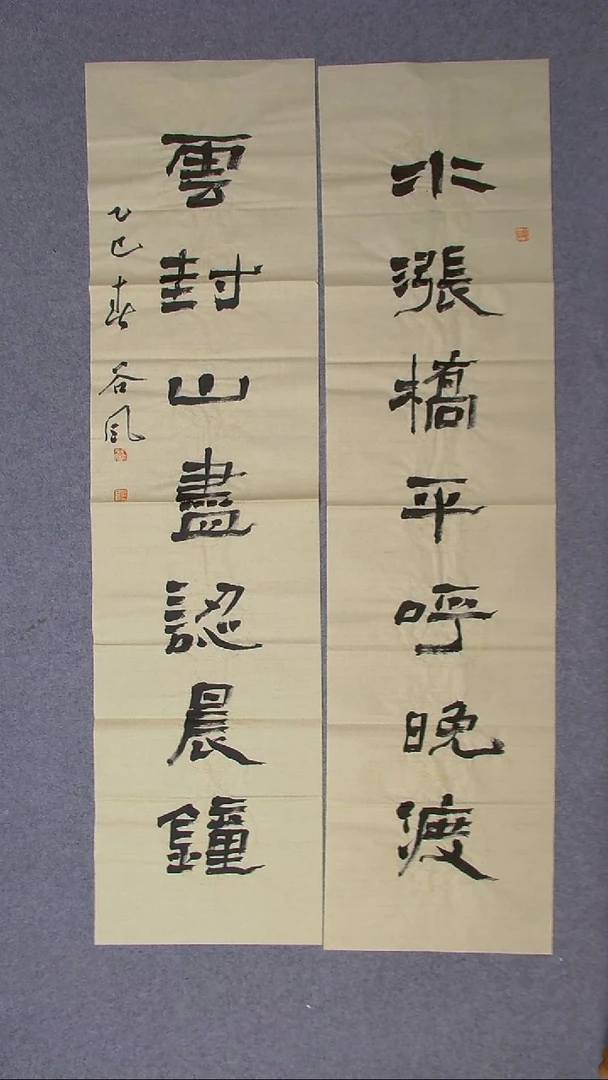 水漲橋平呼晚渡
雲封山盡認晨鐘
乙巳春 谷風